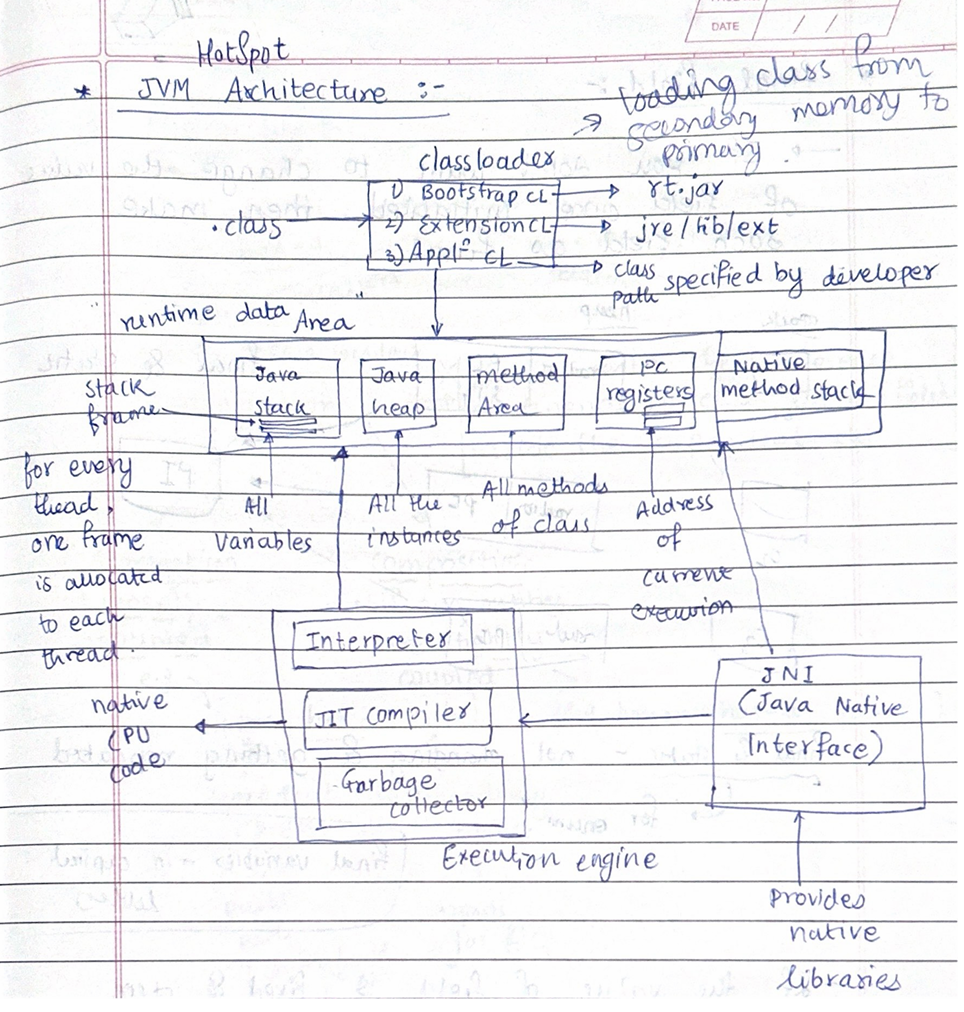 DATE / /
HotSpot
* JVM Architecture :-
→ loading class from
secondary memory to
primary
classloader
1) Bootstrap CL → rt.jar
.class
2) Extension CL → jre/lib/ext
3) Appl⁠n CL → class path specified by developer
"runtime data Area"
stack frame
Java stack
Java heap
method Area
PC registers
Native method stack
for every
thead,
one frame
is allocated
to each
thread.
All
variables
All the
instances
All methods
of class
Address
of
current
execurion
Interpreter
JIT compiler
Garbage
collector
Execution engine
native
CPU
code
JNI
(Java Native
Interface)
provides
native
libraries